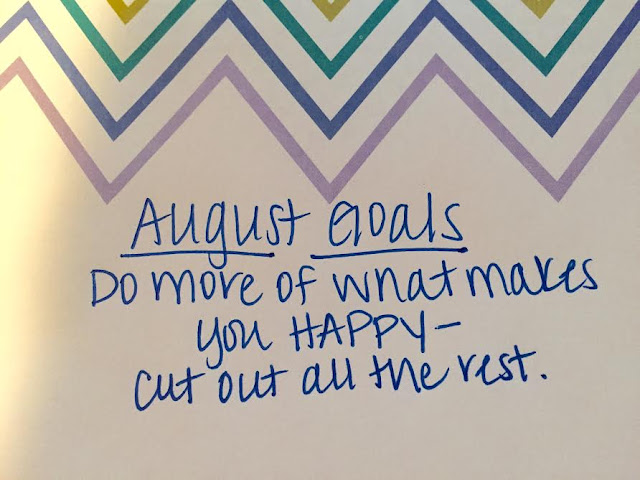 August Goals
Do more of what makes
you HAPPY-
cut out all the rest.